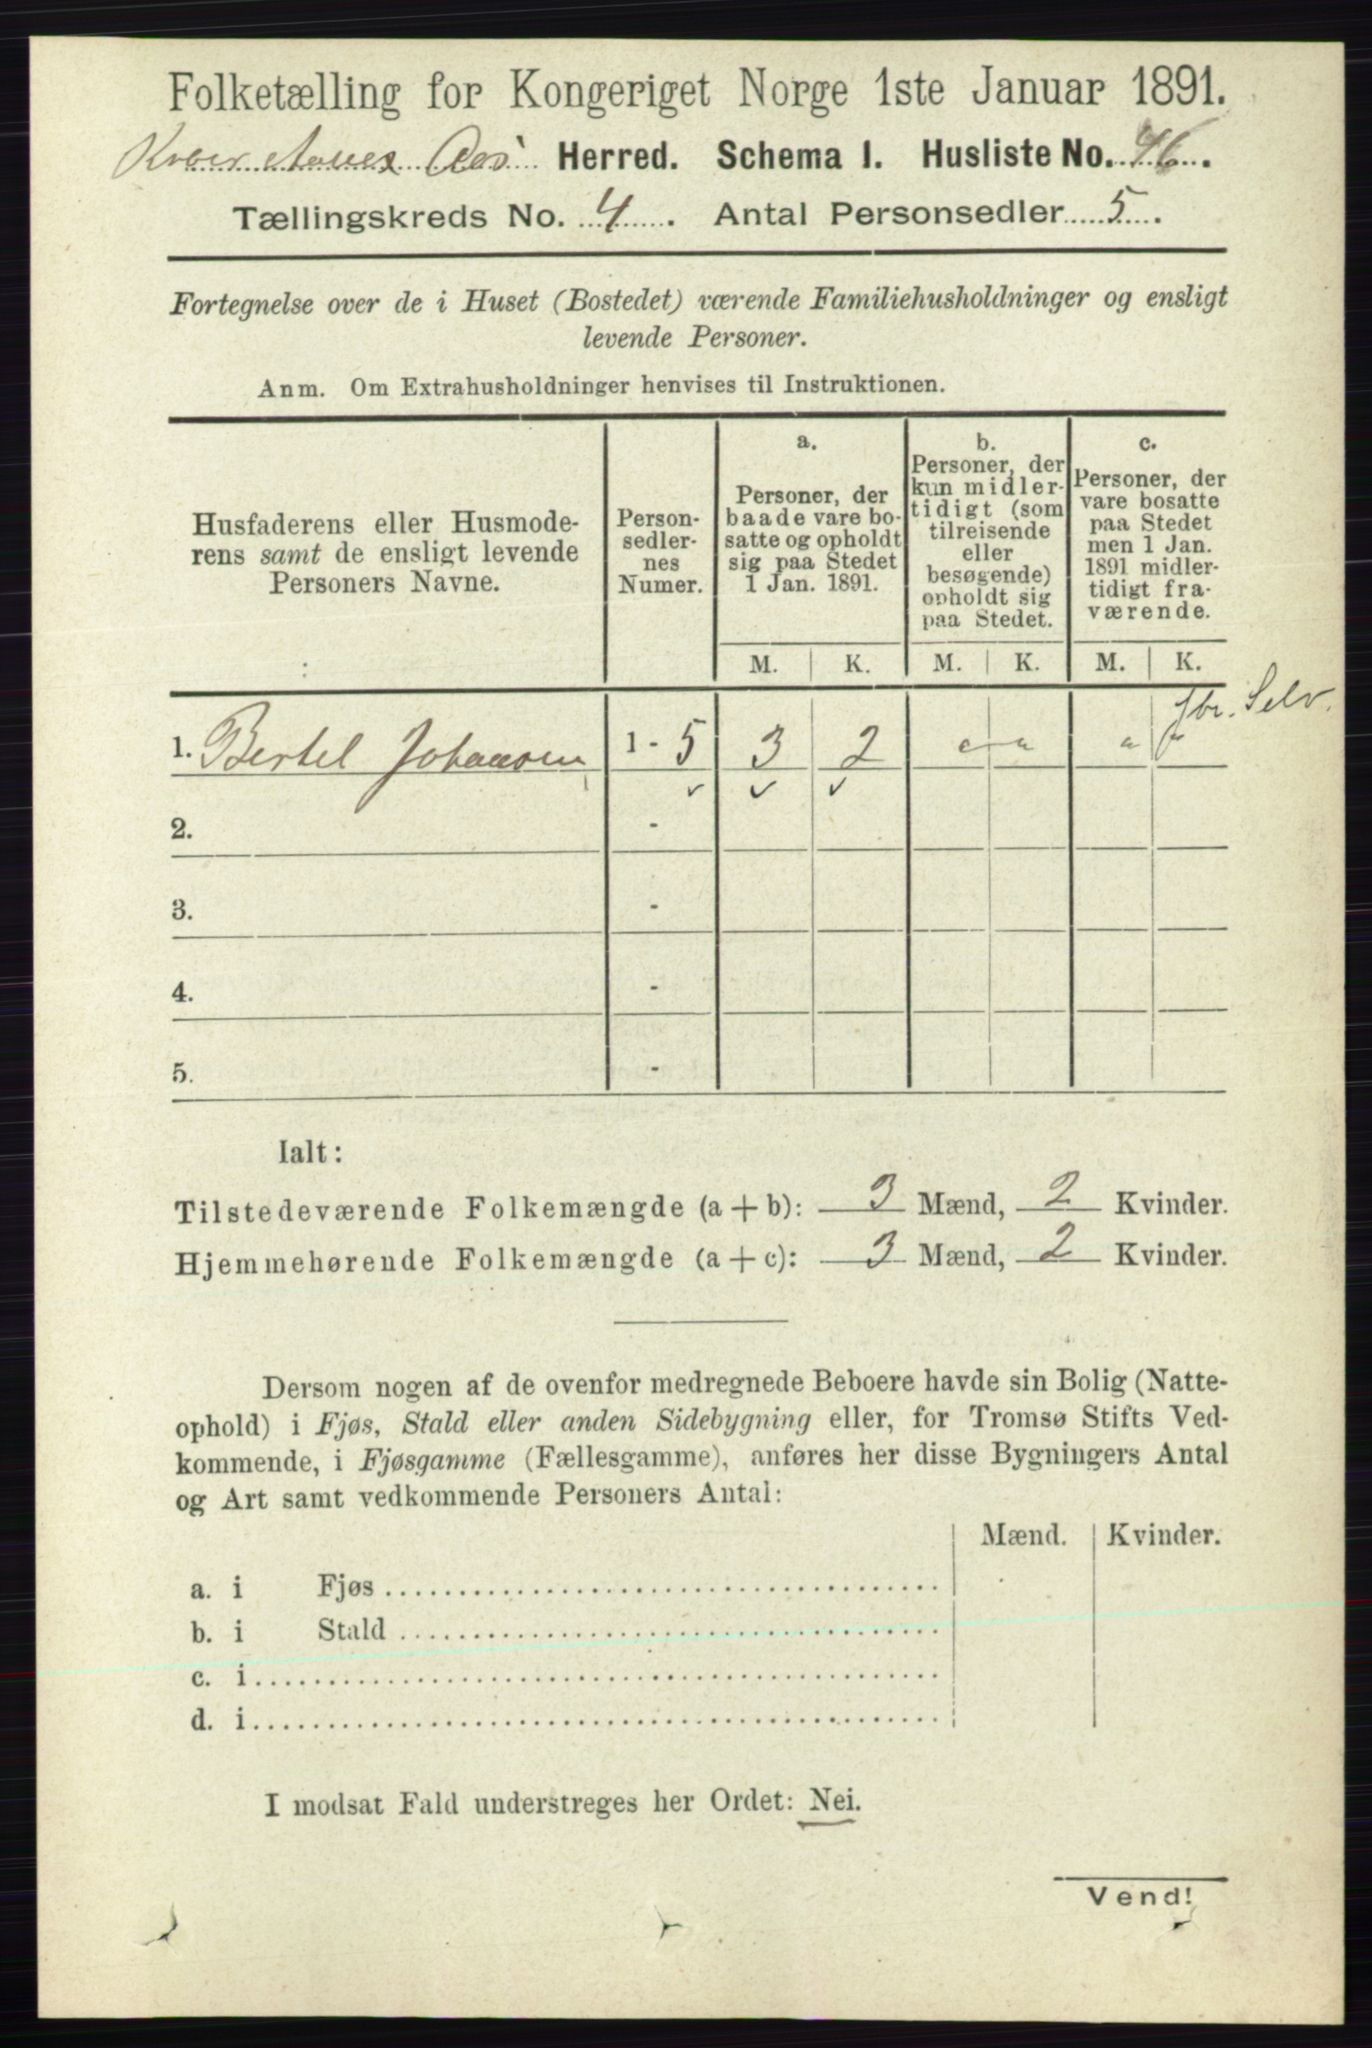 Folketælling for Kongeriget Norge 1ste Januar 1891.
Aas Herred. Schema I. Husliste No. 46.
Tællingskreds No. 4. Antal Personsedler 5.
Fortegnelse over de i Huset (Bostedet) værende Familiehusholdninger og ensligt
levende Personer.
Anm. Om Extrahusholdninger henvises til Instruktionen.
Husfaderens eller Husmode-
rens samt de ensligt levende
Personers Navne.
Person-
sedler-
nes
Numer.
a.
Personer, der
baade vare bo-
satte og opholdt
sig paa Stedet
1 Jan. 1891.
b.
Personer, der
kun midler-
tidigt (som
tilreisende
eller
besøgende)
opholdt sig
paa Stedet.
c.
Personer, der
vare bosatte
paa Stedet
men 1 Jan.
1891 midler-
tidigt fra-
værende.
M. K. M. K. M. K.
fbr. Selv.
1. Bertel Johansen 1 - 5 3 2 " " " "
2. -
3. -
4. -
5. -
Ialt:
Tilstedeværende Folkemængde (a + b): 3 Mænd, 2 Kvinder.
Hjemmehørende Folkemængde (a + c): 3 Mænd, 2 Kvinder.
Dersom nogen af de ovenfor medregnede Beboere havde sin Bolig (Natte-
ophold) i Fjøs, Stald eller anden Sidebygning eller, for Tromsø Stifts Ved-
kommende, i Fjøsgamme (Fællesgamme), anføres her disse Bygningers Antal
og Art samt vedkommende Personers Antal:
Mænd. Kvinder.
a. i Fjøs
b. i Stald
c. i
d. i
I modsat Fald understreges her Ordet: Nei.
Vend!